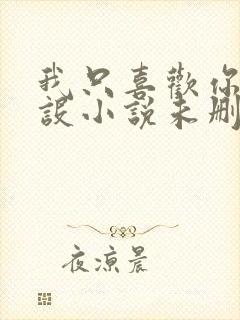 我只喜歡你
設小說未刪
夜涼晨